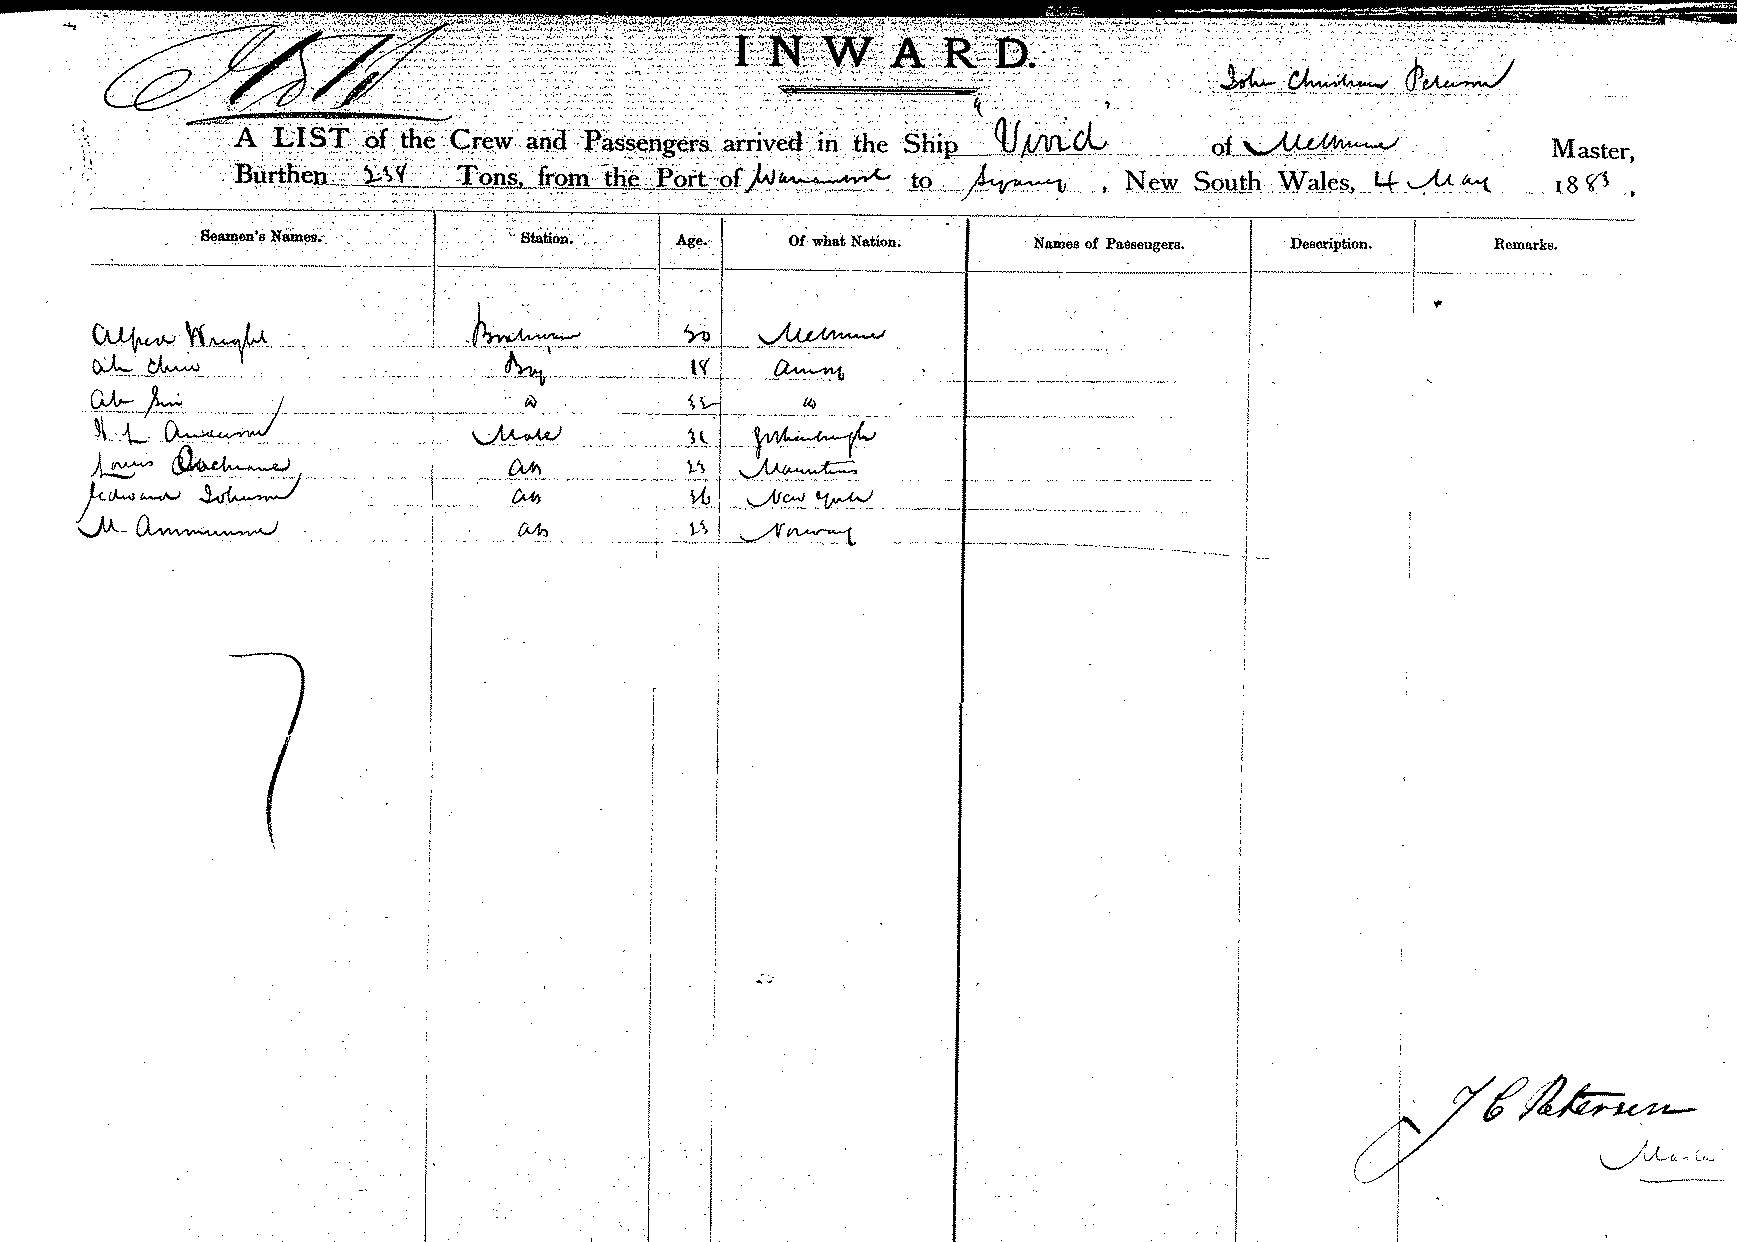 INWARD.
John Christian Peterson
A LIST of the Crew and Passengers arrived in the Ship Vivid of Melbourne Master,
Burthen 238 Tons, from the Port of to Sydney, New South Wales, 4 May 1883.
Seamen's Names. Station. Age. Of what Nation. Names of Passengers. Description. Remarks.
Alfred Wright 30 Melbourne
Ah Chew Boy 18 Amoy
Ah Sin
Anderson Mate Gothenburgh
Louis Cochrane AB 23 Mauritius
Edward Johnson AB 36 New York
M AB 23 Norway
7
J C Petersen
Master